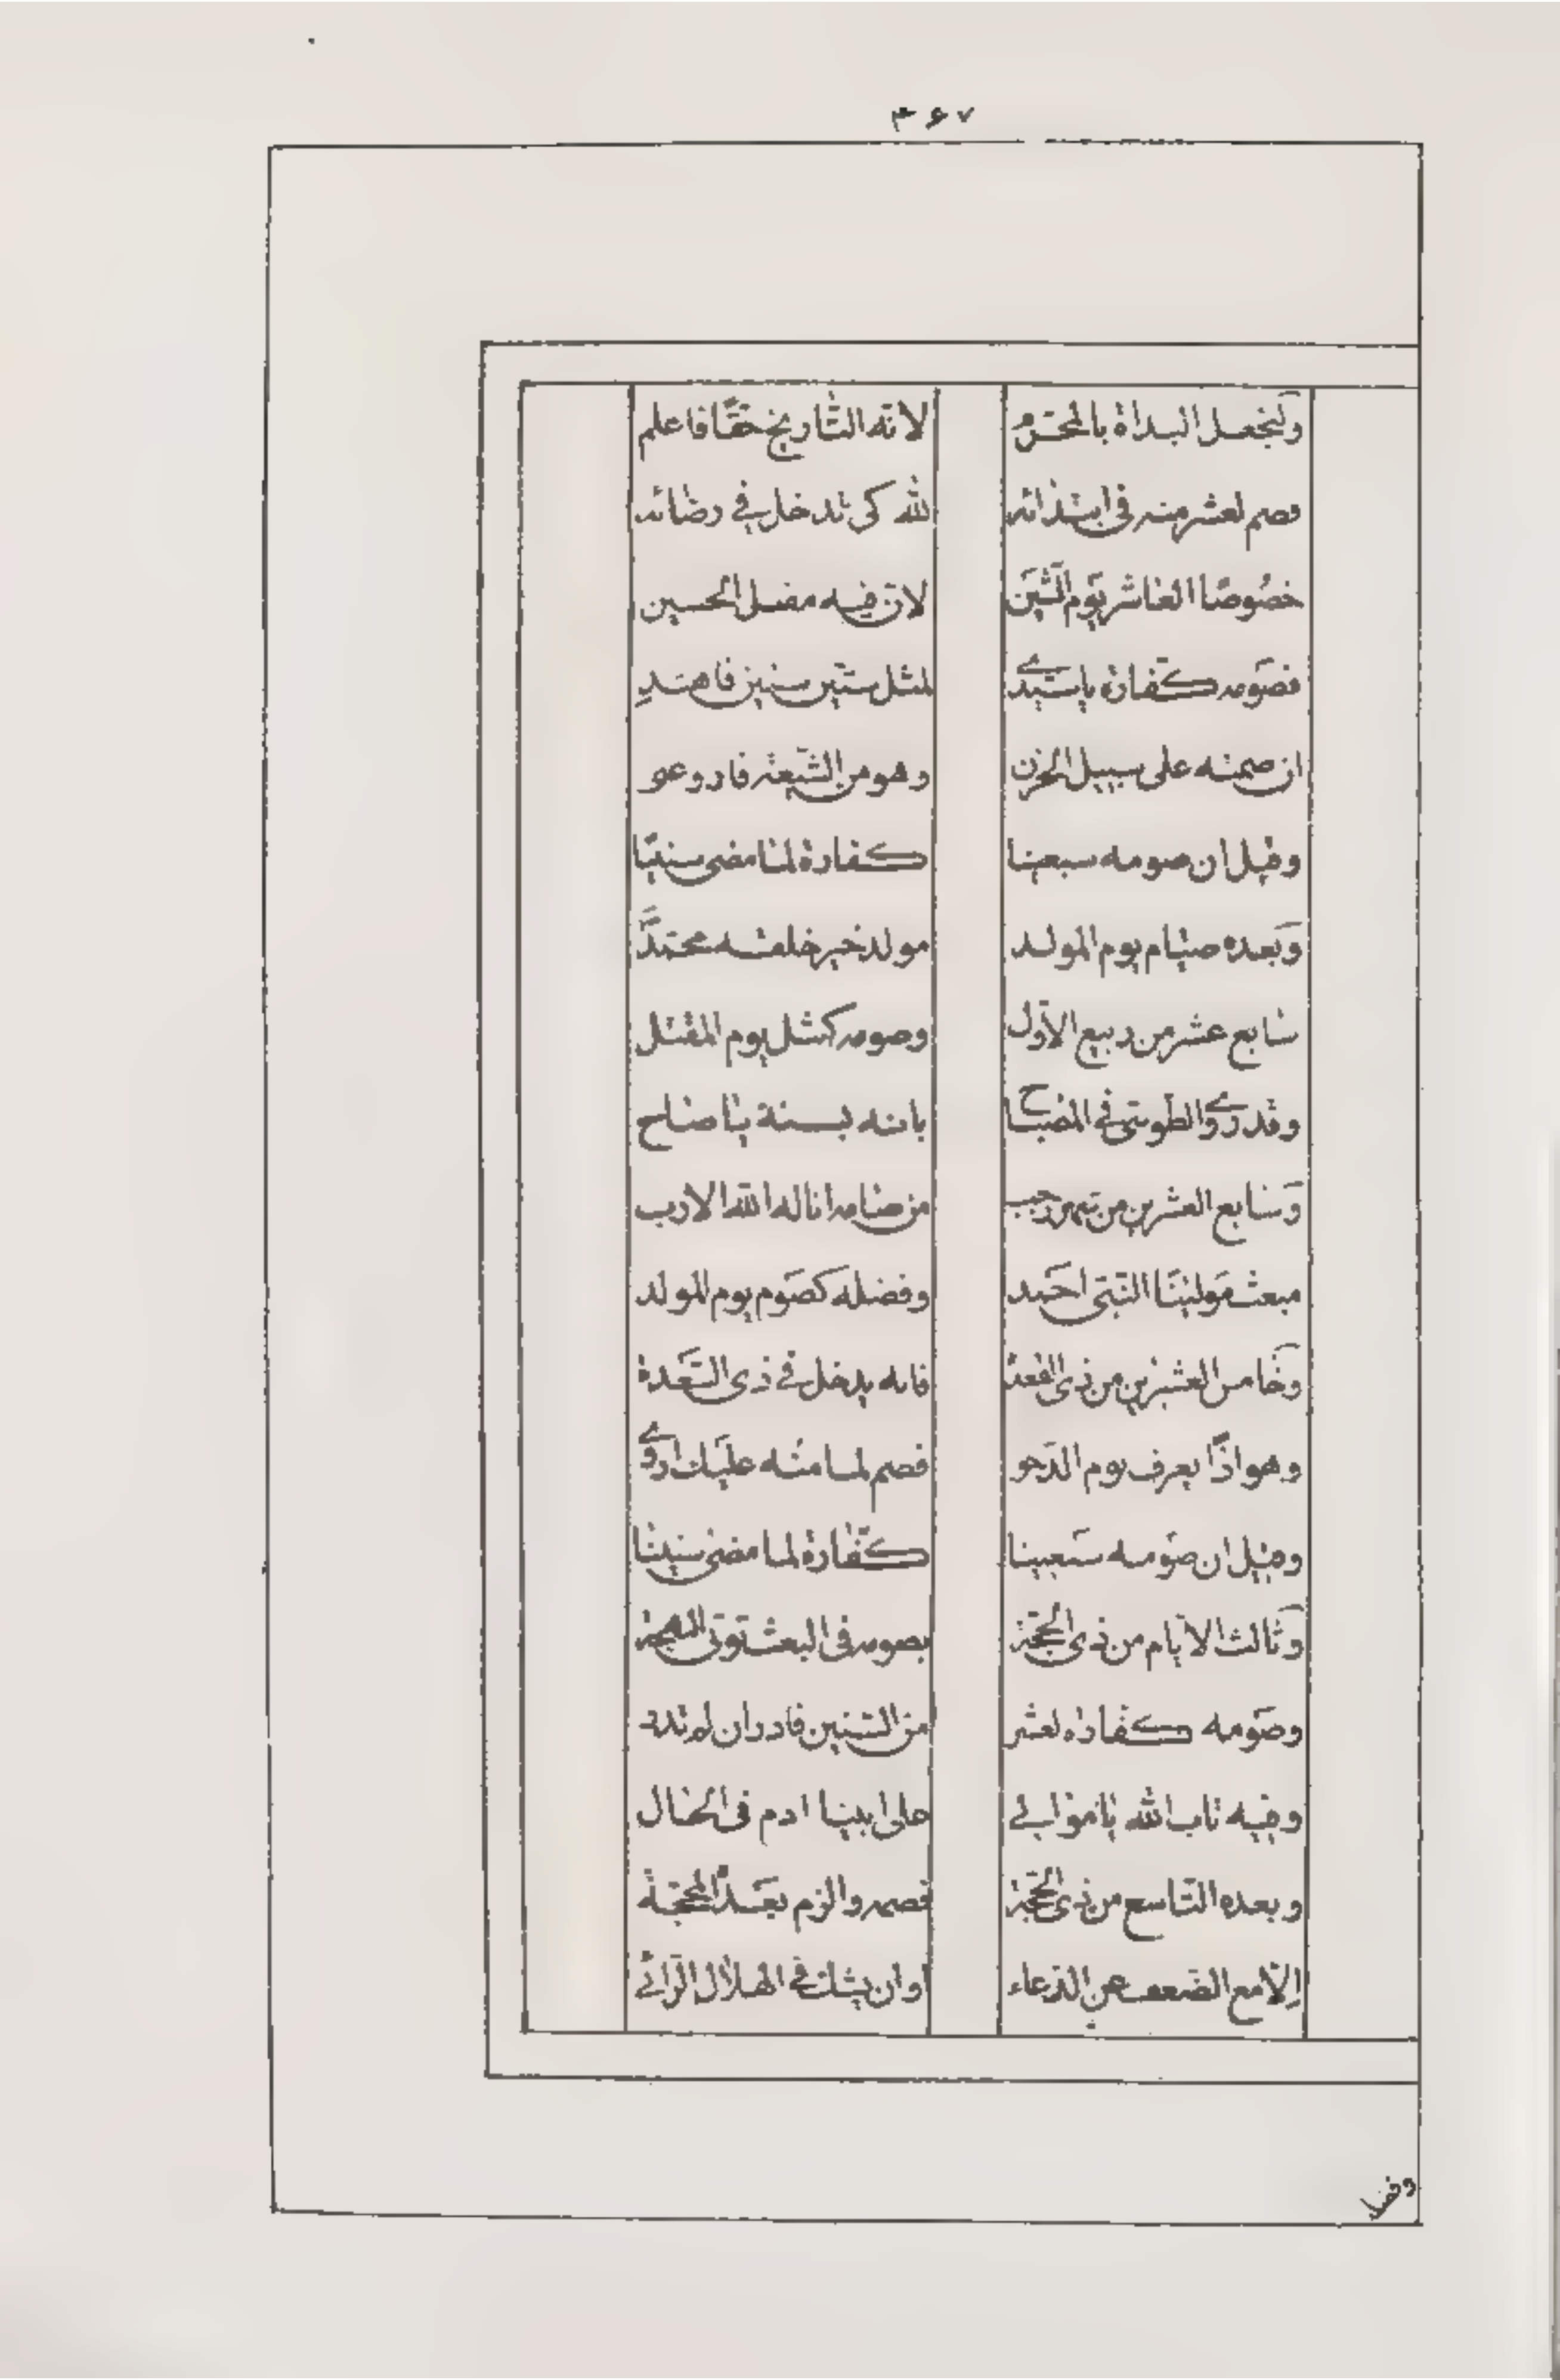 ۳۶۷
ولنجعل البداة بالمحرم لانه التاريخ حقا فاعلم
فصم لعشر منه فى ابتدائه لله كى تدخل في رضائه
خصوصا العاشر يوم الشين لان فيه مقتل الحسين
فصومه كفارة يا سيدي لمثل ستين سنين فاهتد
ان صمته على سبيل الحزن وهو من الشيعة فارو عنى
وقيل ان صومه سبعينا كفارة لما مضى سنينا
وبعده صيام يوم المولد مولد خير خلقه محمد
سابع عشر من ربيع الاول وصومه كمثل يوم المقتل
وقد روي الطوسى في المصباح بانه بسنة يا صاح
وسابع العشرين من شهر رجب من صامه اناله الله الارب
مبعث مولينا النبى احمد وفضله كصوم يوم المولد
وخامس العشرين من ذى القعدة فانه يدخل في ذى القعدة
وهو اذا يعرف يوم الدحو فصم لما منه عليك اروي
وقيل ان صومه سبعينا كفارة لما مضى سنينا
وثالث الايام من ذى الحجة بصومه فى البعث توقى
وصومه كفارة لعشر من السنين فادر ان لم تدر
وفيه تاب الله يا موالي على ابينا ادم فى الحال
وبعده التاسع من ذى الحجة فصمه والزم بعد المحجة
الا مع الضعف عن الدعاء اوان يشك في الهلال الرائي